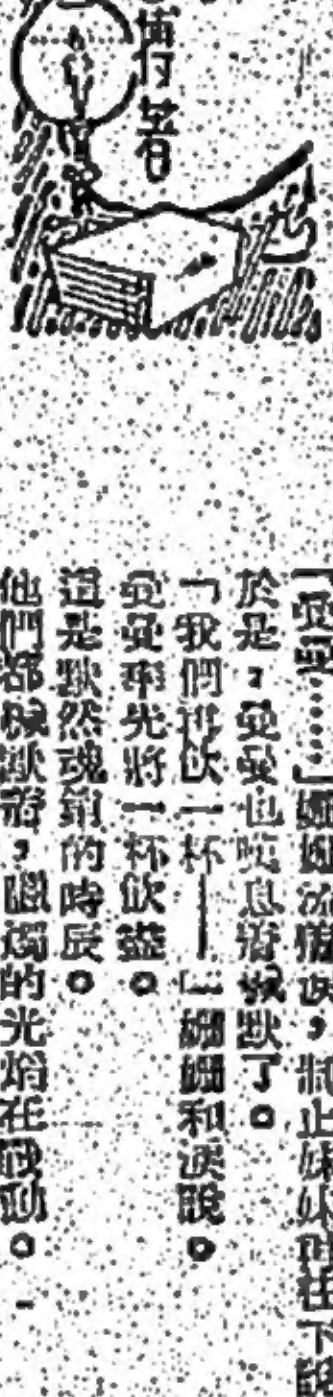 「曼曼……」姍姍流着淚,制止妹妹再往下說
於是,曼曼也嘆息着緘默了。
「我們再飲一杯——」姍姍和淚說。
曼曼率先將一杯飲盡。
這是黯然魂銷的時辰。
他們都緘默着,臘燭的光焰在戰動。